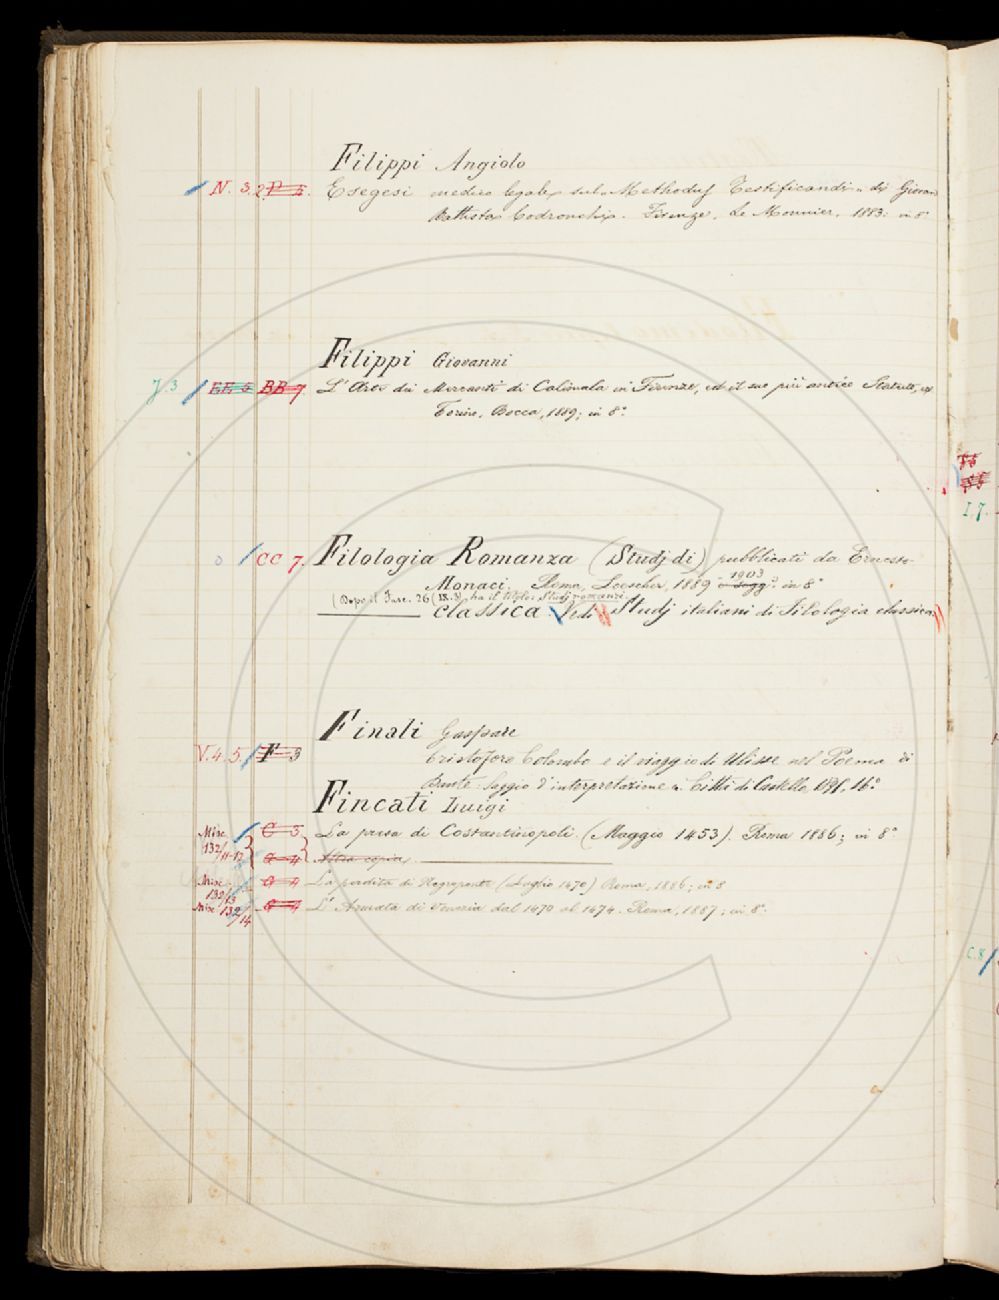 Filippi Angiolo
N. 3. 2. Esegesi medico legale sul "Methodus Testificandi" di Giovan
Battista Codronchi. Firenze, Le Monnier, 1883: in 8°
Filippi Giovanni
J. 3 EE 5 BB 7. L'Arte dei Mercanti di Calimala in Firenze, ed il suo più antico Statuto,
Torino, Bocca, 1889; in 8°.
CC 7. Filologia Romanza (Studj di) pubblicati da Ernesto
Monaci. Roma, Loescher, 1889 1903 in 8°
(Dopo il Fasc. 26 (IX. 3) ha il titolo: Studj romanzi.
classica. Vedi Studj italiani di Filologia classica
Finali Gaspare
V. 4. 5. F 3 Cristoforo Colombo e il viaggio di Ulisse nel Poema di
Dante. Saggio d'interpretazione. Città di Castello, 16.°
Fincati Luigi
Misc. 132/11-12 La presa di Costantinopoli (Maggio 1453). Roma 1886; in 8°
Altra copia.
Misc. 132/13 La perdita di Negroponte (Luglio 1470) Roma, 1886; in 8
Misc. 132/14 L'Armata di Venezia dal 1470 al 1474. Roma, 1887; in 8°.
I. 7.
C. 8